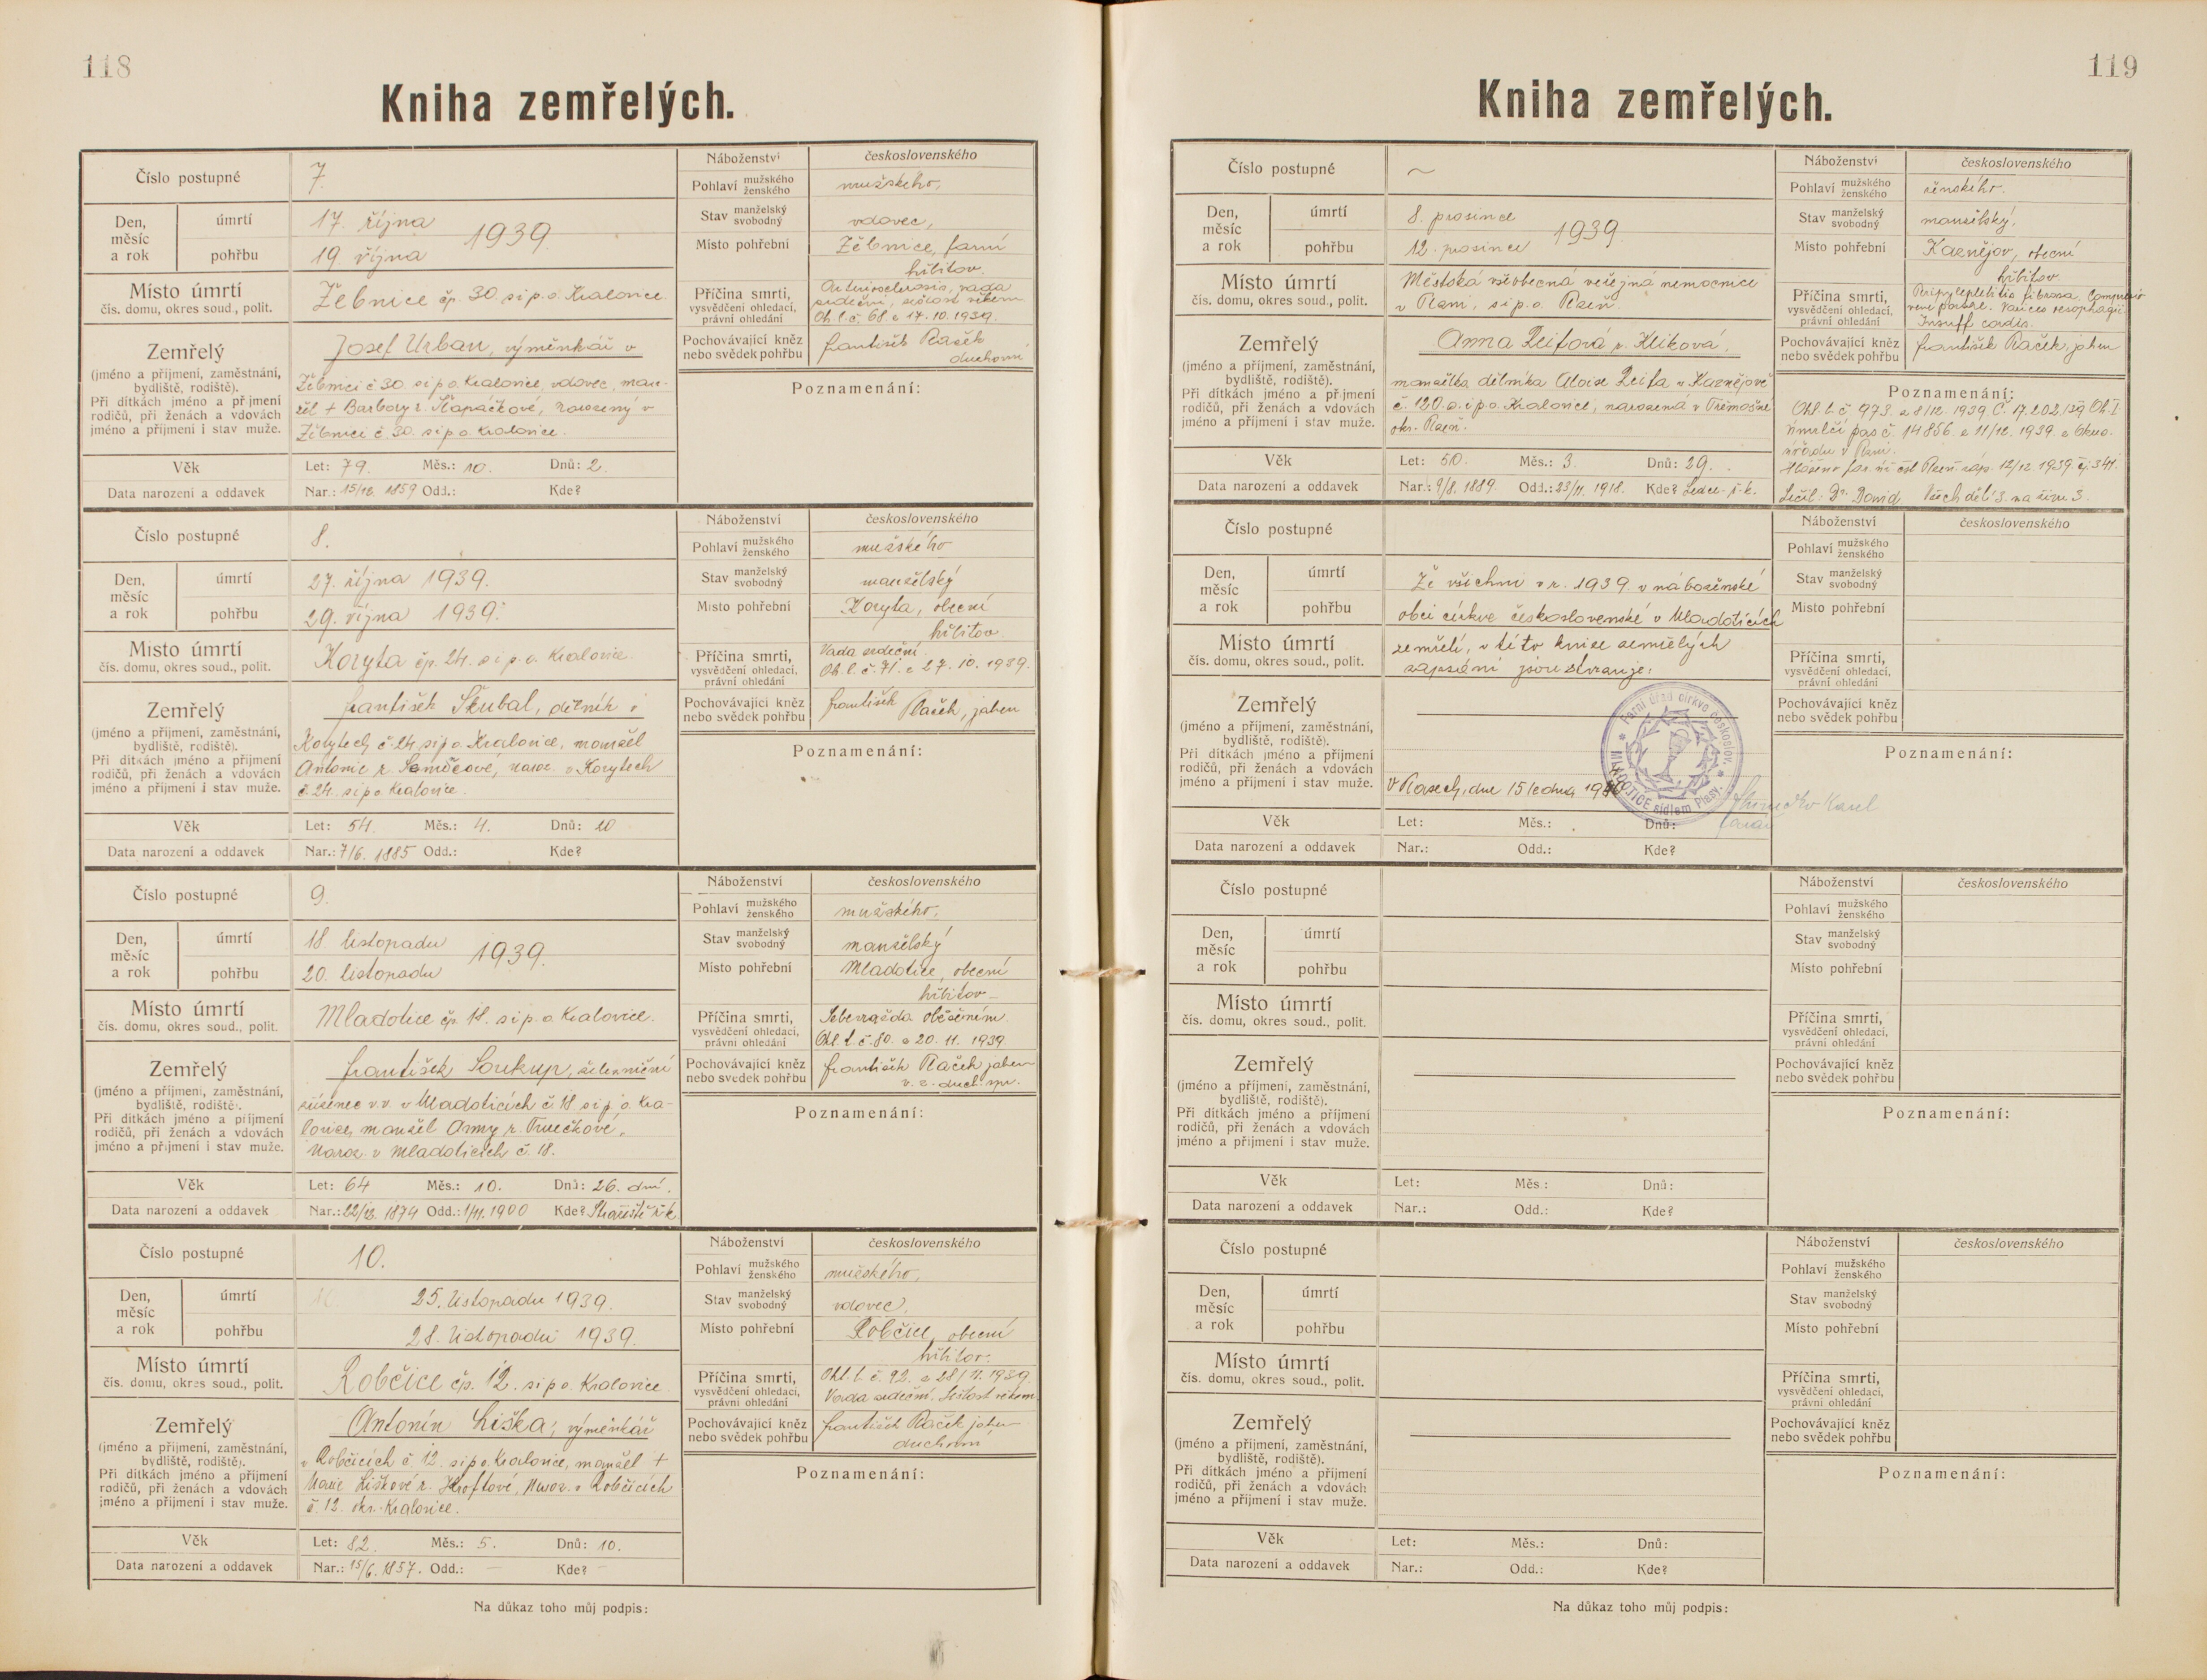 118
Kniha zemřelých.
Číslo postupné 7.
Náboženství československého
Pohlaví mužského ženského mužského,
Den, měsíc a rok úmrtí 17. října 1939
pohřbu 19. října
Stav manželský svobodný vdovec,
Místo pohřební Žebnice, farní
hřbitov.
Místo úmrtí Žebnice čp. 30. s i p. o. Kralovice.
čís. domu, okres soud., polit.
Příčina smrti, Arteriosclerosis, vada
vysvědčení ohledací, srdeční, sešlost věkem
právní ohledání Oh. l. č. 68 z 17. 10. 1939.
Zemřelý Josef Urban, výměnkář v
(jméno a příjmení, zaměstnání, bydliště, rodiště).
Při dítkách jméno a příjmení rodičů, při ženách a vdovách jméno a příjmení i stav muže.
Žebnici č 30 s i p o Kralovice, vdovec, man-
žel + Barbory r.
Žebnici č. 30. s i p o. Kralovice.
Pochovávající kněz nebo svědek pohřbu František Raček
duchovní
Poznamenání:
Věk Let: 79. Měs.: 10. Dnů: 2.
Data narození a oddavek Nar.: 15/12. 1859 Odd.: Kde?
Číslo postupné 8.
Náboženství československého
Pohlaví mužského ženského mužského
Den, měsíc a rok úmrtí 27. října 1939.
pohřbu 29. října 1939.
Stav manželský svobodný manželský
Místo pohřební Koryta, obecní
hřbitov.
Místo úmrtí Koryta čp. 24. s i p. o. Kralovice.
čís. domu, okres soud., polit.
Příčina smrti, Vada srdeční.
vysvědčení ohledací, právní ohledání Oh. l. č. 71. z 27. 10. 1939.
Zemřelý František Škubal, dělník v
(jméno a příjmení, zaměstnání, bydliště, rodiště).
Při dítkách jméno a příjmení rodičů, při ženách a vdovách jméno a příjmení i stav muže.
Korytech č. 24 s i p o. Kralovice, manžel
Antonie r. naroz. v Korytech
č. 24. s i p o Kralovice.
Pochovávající kněz nebo svědek pohřbu František Raček, jahen
Poznamenání:
Věk Let: 54. Měs.: 4. Dnů: 20
Data narození a oddavek Nar.: 7/6. 1885 Odd.: Kde?
Číslo postupné 9.
Náboženství československého
Pohlaví mužského ženského mužského.
Den, měsíc a rok úmrtí 18 listopadu 1939.
pohřbu 20. listopadu
Stav manželský svobodný manželský
Místo pohřební Mladotice, obecní
hřbitov
Místo úmrtí Mladotice čp. 18. s i p. o Kralovice.
čís. domu, okres soud., polit.
Příčina smrti, Sebevražda oběšením
vysvědčení ohledací, právní ohledání Ohl. l. č. 80. z 20. 11. 1939
Zemřelý František Soukup, železniční
(jméno a příjmení, zaměstnání, bydliště, rodiště).
Při dítkách jméno a příjmení rodičů, při ženách a vdovách jméno a příjmení i stav muže.
zřízenec v. v. v Mladoticích č. 18 s i p. o. Kra-
lovice, manžel Anny r.
Naroz. v Mladoticích č. 18.
Pochovávající kněz nebo svědek pohřbu František Raček jahen
v. z. duch. spr.
Poznamenání:
Věk Let: 64 Měs.: 10. Dnů: 26. dní.
Data narození a oddavek Nar.: 22/12. 1874 Odd.: 1/11. 1900 Kde?
Číslo postupné 10.
Náboženství československého
Pohlaví mužského ženského mužského,
Den, měsíc a rok úmrtí 25. listopadu 1939.
pohřbu 28. listopadu 1939.
Stav manželský svobodný vdovec,
Místo pohřební Robčice, obecní
hřbitov.
Místo úmrtí Robčice čp. 12. s i p o. Kralovice
čís. domu, okres soud., polit.
Příčina smrti, Ohl. l. č. 92. z 28/11. 1939.
vysvědčení ohledací, právní ohledání Vada srdeční. Sešlost věkem
Zemřelý Antonín Liška, výměnkář
(jméno a příjmení, zaměstnání, bydliště, rodiště).
Při dítkách jméno a příjmení rodičů, při ženách a vdovách jméno a příjmení i stav muže.
v Robčicích č 12. s i p o. Kralovice, manžel +
Marie Liškové r. Kroftové, naroz. v Robčicích
č. 12. okr. Kralovice.
Pochovávající kněz nebo svědek pohřbu František Raček jahen
duchovní
Poznamenání:
Věk Let: 82. Měs.: 5. Dnů: 10.
Data narození a oddavek Nar.: 15/6. 1857. Odd.: — Kde? —
Na důkaz toho můj podpis:
119
Kniha zemřelých.
Číslo postupné ~
Náboženství československého
Pohlaví mužského ženského ženského.
Den, měsíc a rok úmrtí 8. prosince 1939.
pohřbu 12. prosince
Stav manželský svobodný manželský,
Místo pohřební Kaznějov, obecní
hřbitov
Místo úmrtí Městská všeobecná veřejná nemocnice
čís. domu, okres soud., polit. v Plzni, s i p. o. Plzeň.
Příčina smrti, vysvědčení ohledací, právní ohledání fibrosa.
Insuff cordis.
Zemřelý Anna Leifová r. Klíková,
(jméno a příjmení, zaměstnání, bydliště, rodiště).
Při dítkách jméno a příjmení rodičů, při ženách a vdovách jméno a příjmení i stav muže.
manželka dělníka Aloise Leifa v Kaznějově
č. 120. s. i p. o. Kralovice, narozená v Třemošné
okr. Plzeň.
Pochovávající kněz nebo svědek pohřbu František Raček, jahen
Poznamenání:
Ohl. l. č. 973. z 8/12. 1939. Č. 17.202/39 Ob. I
Umrlčí pas č. 14856. z 11/12. 1939.
úřadu v Plzni.
Hlášeno far. úř. čsl Plzeň záp. 12/12 1939. čj. 341.
Léčil: Dr. David Všech dětí 3. na živu 3.
Věk Let: 50. Měs.: 3. Dnů: 29.
Data narození a oddavek Nar.: 9/8. 1889. Odd.: 23/11. 1918. Kde? Ledce ř.-k.
Číslo postupné
Náboženství československého
Pohlaví mužského ženského
Den, měsíc a rok úmrtí Že všichni v r. 1939. v náboženské
pohřbu obci církve československé v Mladoticích
Stav manželský svobodný
Místo pohřební
Místo úmrtí zemřelí, v této knize zemřelých
čís. domu, okres soud., polit. zapsáni jsou stvrzuje:
Příčina smrti, vysvědčení ohledací, právní ohledání
Zemřelý
(jméno a příjmení, zaměstnání, bydliště, rodiště).
Při dítkách jméno a příjmení rodičů, při ženách a vdovách jméno a příjmení i stav muže.
Farní úřad církve českoslov. * MLADOTICE sídlem Plasy. *
V Plasech, dne 15 ledna 1940
Karel
farář
Pochovávající kněz nebo svědek pohřbu
Poznamenání:
Věk Let: Měs.: Dnů:
Data narození a oddavek Nar.: Odd.: Kde?
Číslo postupné
Náboženství československého
Pohlaví mužského ženského
Den, měsíc a rok úmrtí
pohřbu
Stav manželský svobodný
Místo pohřební
Místo úmrtí
čís. domu, okres soud., polit.
Příčina smrti, vysvědčení ohledací, právní ohledání
Zemřelý
(jméno a příjmení, zaměstnání, bydliště, rodiště).
Při dítkách jméno a příjmení rodičů, při ženách a vdovách jméno a příjmení i stav muže.
Pochovávající kněz nebo svědek pohřbu
Poznamenání:
Věk Let: Měs.: Dnů:
Data narození a oddavek Nar.: Odd.: Kde?
Číslo postupné
Náboženství československého
Pohlaví mužského ženského
Den, měsíc a rok úmrtí
pohřbu
Stav manželský svobodný
Místo pohřební
Místo úmrtí
čís. domu, okres soud., polit.
Příčina smrti, vysvědčení ohledací, právní ohledání
Zemřelý
(jméno a příjmení, zaměstnání, bydliště, rodiště).
Při dítkách jméno a příjmení rodičů, při ženách a vdovách jméno a příjmení i stav muže.
Pochovávající kněz nebo svědek pohřbu
Poznamenání:
Věk Let: Měs.: Dnů:
Data narození a oddavek Nar.: Odd.: Kde?
Na důkaz toho můj podpis: